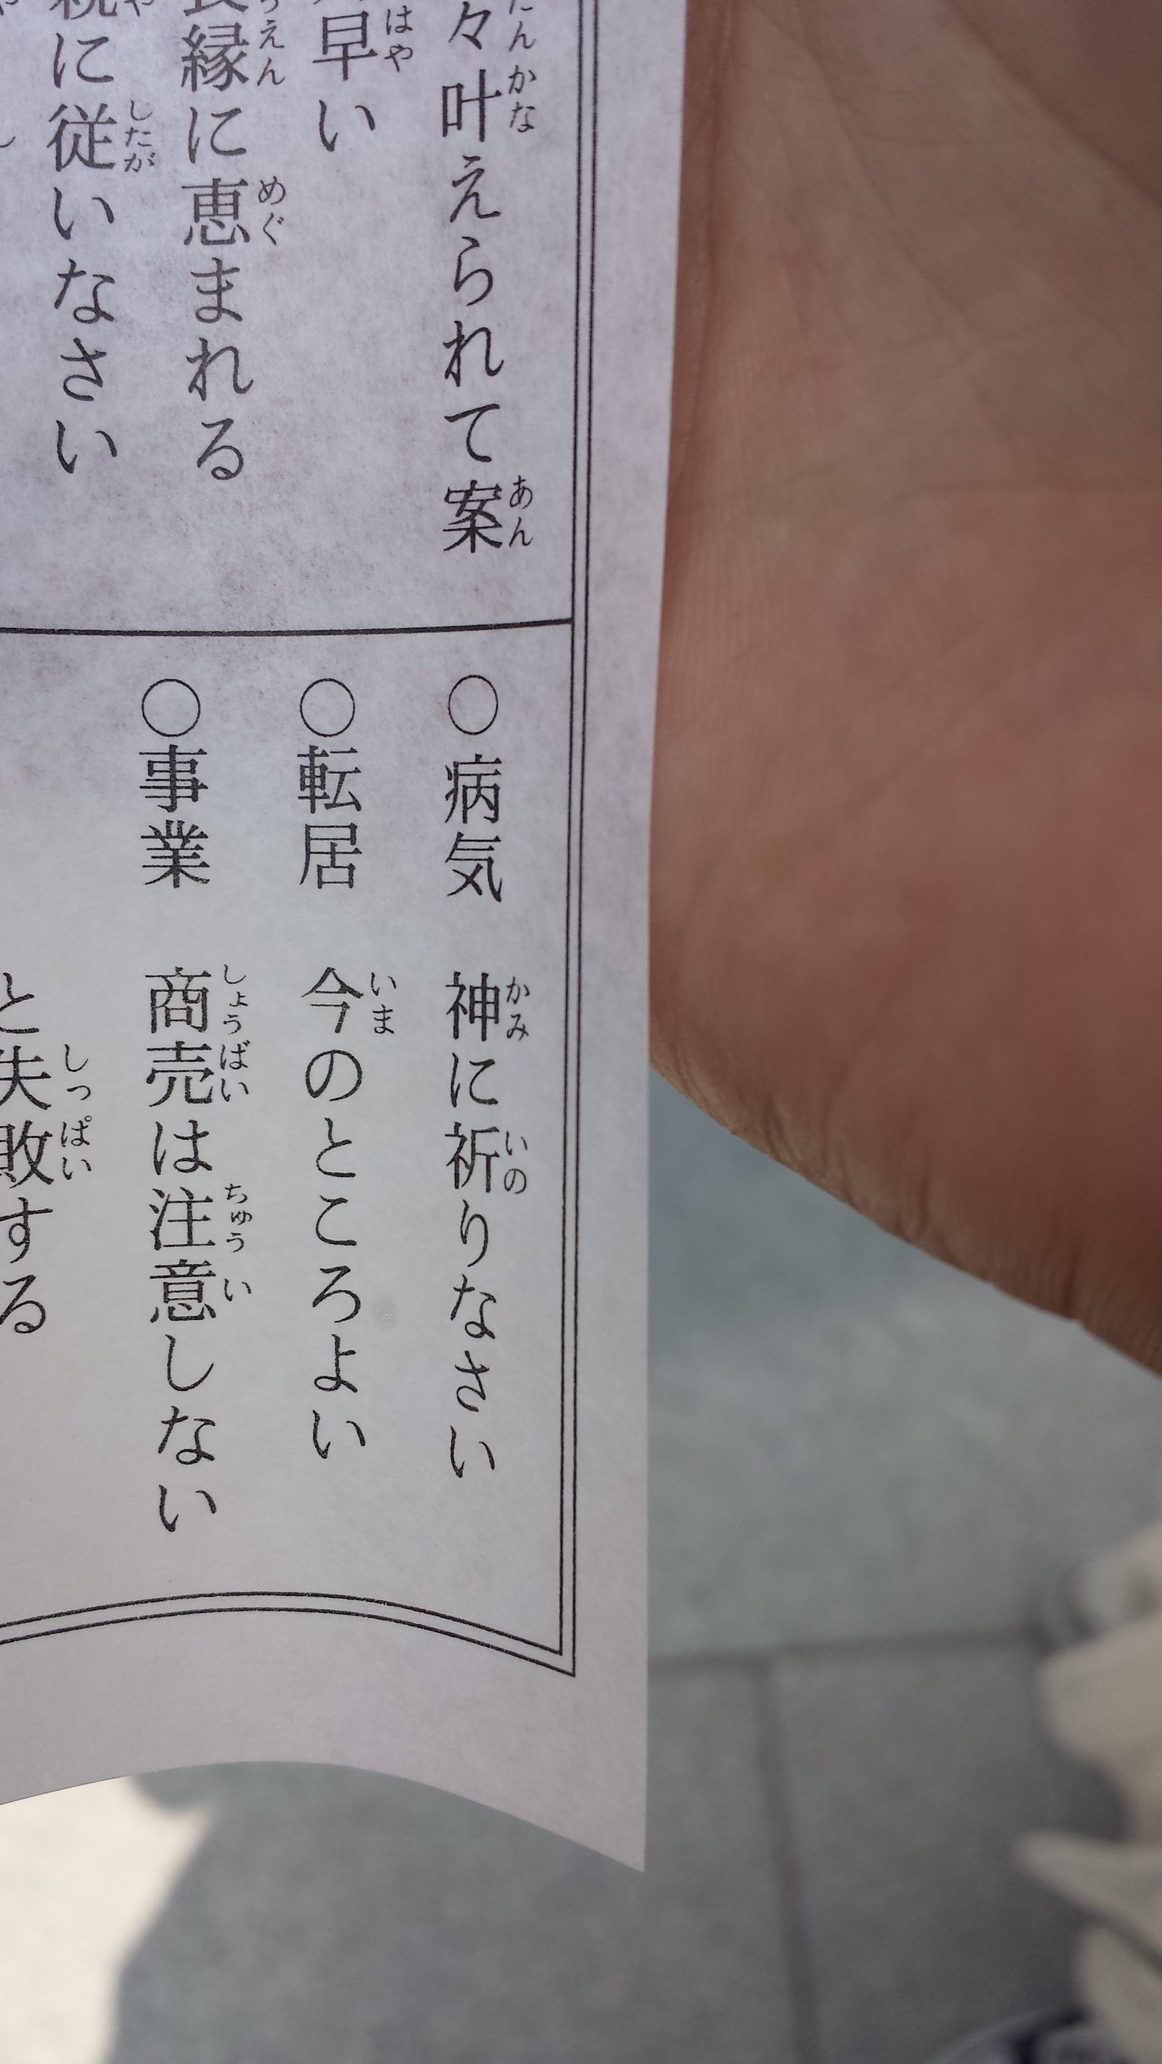 々叶えられて案
早い
縁に恵まれる
に従いなさい
○病気 神に祈りなさい
○転居 今のところよい
○事業 商売は注意しない
と失敗する